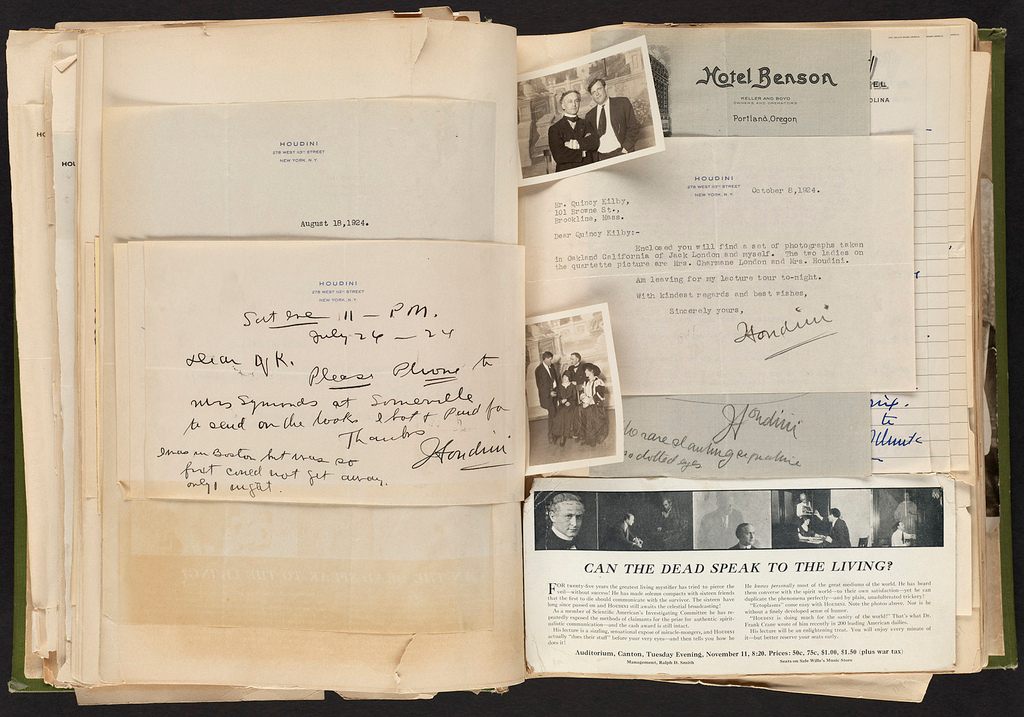 HOUDINI
278 WEST 113TH STREET
NEW YORK, N.Y.
August 18,1924.
HOUDINI
278 WEST 113TH STREET
NEW YORK, N.Y.
Sat Eve 11 — P.M.
July 26 — 24
Dear Q K.
Please Phone to
Mrs Symonds at Somerville
to send on the books I bot & Paid for
Thanks
Houdini
I was in Boston but was so
could not get away.
only 1 night.
Hotel Benson
KELLER AND BOYD
OWNERS AND OPERATORS
Portland, Oregon
HOUDINI
278 WEST 113TH STREET
NEW YORK, N.Y.
October 8,1924.
Mr. Quincy Kilby,
101 Browne St.,
Brookline, Mass.
Dear Quincy Kilby:-
Enclosed you will find a set of photographs taken
in Oakland California of Jack London and myself. The two ladies on
the quartette picture are Mrs. Charmane London and Mrs. Houdini.
Am leaving for my lecture tour to-night.
With kindest regards and best wishes,
Sincerely yours,
Houdini
Houdini
rare slanting signature
dotted eyes
OLINA
to
CAN THE DEAD SPEAK TO THE LIVING?
FOR twenty-five years the greatest living mystifier has tried to pierce the
veil—without success! He has made solemn compacts with sixteen friends
that the first to die should communicate with the survivor. The sixteen have
long since passed on and HOUDINI still awaits the celestial broadcasting!
As a member of Scientific American's Investigating Committee he has re-
peatedly exposed the methods of claimants for the prize for authentic spirit-
ualistic communication—and the cash award is still intact.
His lecture is a sizzling, sensational expose of miracle-mongers, and HOUDINI
actually "does their stuff" before your very eyes—and then tells you how he
does it!
He knows personally most of the great mediums of the world. He has heard
them converse with the spirit world—to their own satisfaction—yet he can
duplicate the phenomena perfectly—and by plain, unadulterated trickery!
"Ectoplasms" come easy with HOUDINI. Note the photos above. Nor is he
without a finely developed sense of humor.
"HOUDINI is doing much for the sanity of the world!" That's what Dr.
Frank Crane wrote of him recently in 200 leading American dailies.
His lecture will be an enlightening treat. You will enjoy every minute of
it—but better reserve your seats early.
Auditorium, Canton, Tuesday Evening, November 11, 8:20. Prices: 50c, 75c, $1.00, $1.50 (plus war tax)
Management, Ralph D. Smith
Seats on Sale Wille's Music Store